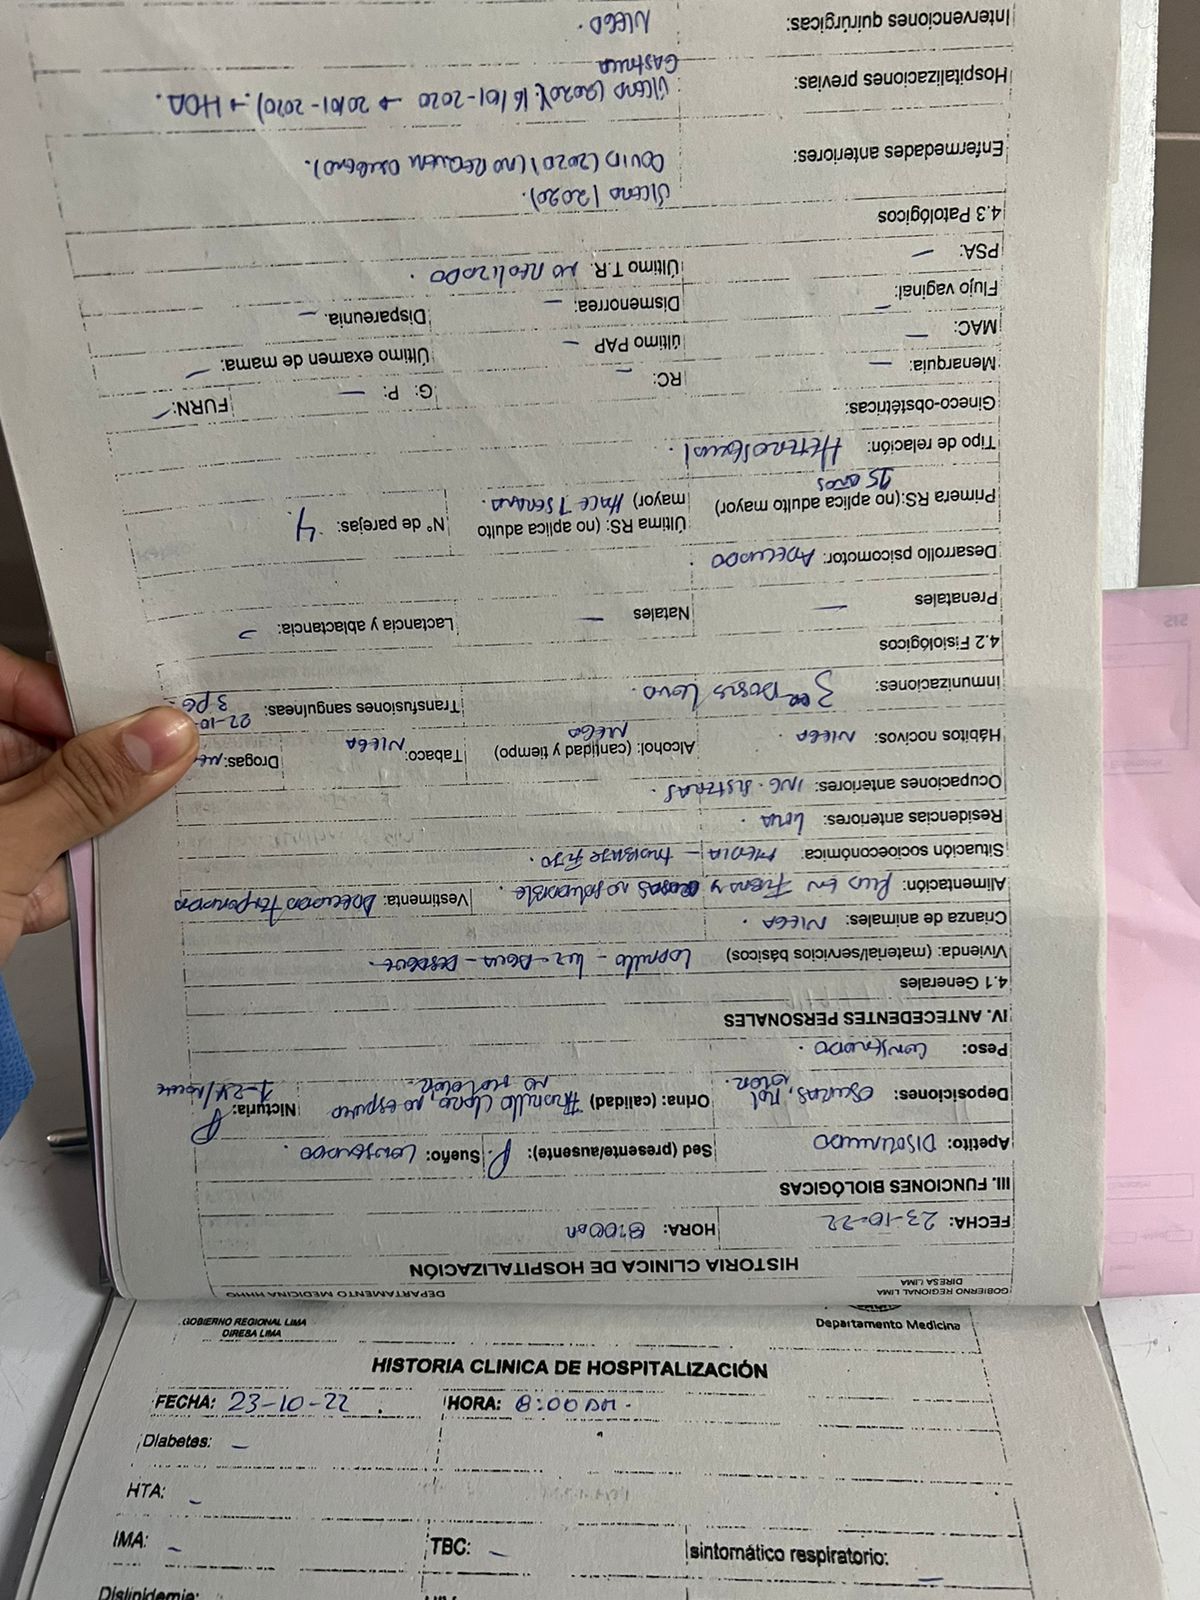 Dislipidemia:
IMA: - TBC: - sintomático respiratorio: -
HTA: -
Diabetes: -
FECHA: 23-10-22 HORA: 8:00 am.
HISTORIA CLINICA DE HOSPITALIZACIÓN
GOBIERNO REGIONAL LIMA Departamento Medicina
DIRESA LIMA
GOBIERNO REGIONAL LIMA DEPARTAMENTO MEDICINA HHHO
DIRESA LIMA
HISTORIA CLINICA DE HOSPITALIZACIÓN
FECHA: 23-10-22 HORA: 8:00 am
III. FUNCIONES BIOLÓGICAS
Apetito: DISMINUIDO Sed (presente/ausente): P. Sueño: CONSERVADO.
Deposiciones: OSCURAS, Mal Orina: (calidad) Amarillo claro, no espuma Nicturia: P
OLOR. NO MAL OLOR. 1-2x/NOCHE
Peso: CONSERVADO.
IV. ANTECEDENTES PERSONALES
4.1 Generales
Vivienda: (material/servicios básicos) Ladrillo - luz - AGUA - DESAGUE.
Crianza de animales: NIEGA.
Alimentación: RICA EN FIBRA Y GRASAS no saludable. Vestimenta: ADECUADA TEMPORADA
Situación socioeconómica: MEDIA - TRABAJO FIJO.
Residencias anteriores: LIMA.
Ocupaciones anteriores: ING. SISTEMAS.
Hábitos nocivos: NIEGA. Alcohol: (cantidad y tiempo) Tabaco: Drogas:
NIEGA NIEGA
Inmunizaciones: 3era DOSIS COVID. Transfusiones sanguíneas: 22-10-
3 PG
4.2 Fisiológicos
Prenatales - Natales - Lactancia y ablactancia: -
Desarrollo psicomotor: ADECUADO
Primera RS:(no aplica adulto mayor) Última RS: (no aplica adulto N° de parejas: 4.
15 AÑOS mayor) HACE 1 SEMANA.
Tipo de relación: HETEROSEXUAL.
Gineco-obstétricas:
Menarquia: - RC: - G: P: - FURN: -
MAC: - último PAP - Último examen de mama: -
Flujo vaginal: - Dismenorrea: - Dispareunia. -
PSA: - Último T.R. NO REALIZADO.
4.3 Patológicos
ÚLCERA (2020).
Enfermedades anteriores: COVID (2020) (NO REQUERÍA OXÍGENO).
Hospitalizaciones previas: ÚLCERA (2020) (16/01-2020 → 20/01-2020). → HDA.
GASTRICA
Intervenciones quirúrgicas: NIEGA.
SIS